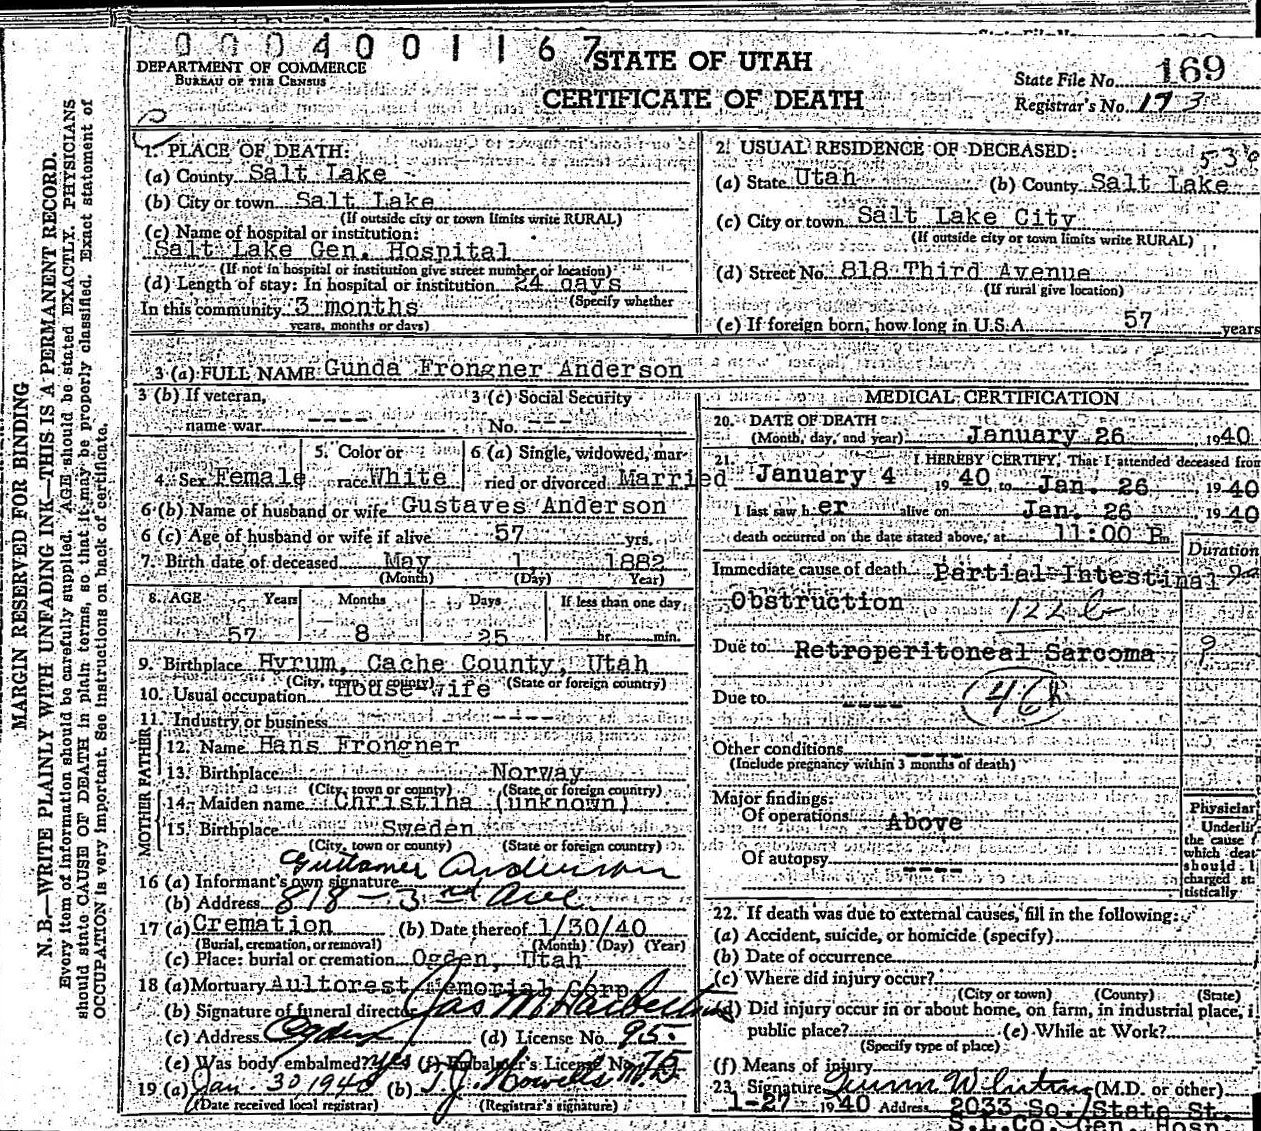 0004001167
DEPARTMENT OF COMMERCE
BUREAU OF THE CENSUS
STATE OF UTAH
CERTIFICATE OF DEATH
State File No. 169
Registrar's No. 173
MARGIN RESERVED FOR BINDING
N. B.—WRITE PLAINLY WITH UNFADING INK—THIS IS A PERMANENT RECORD.
Every item of information should be carefully supplied. AGE should be stated EXACTLY. PHYSICIANS
should state CAUSE OF DEATH in plain terms, so that it may be properly classified. Exact statement of
OCCUPATION is very important. See instructions on back of certificate.
1. PLACE OF DEATH:
(a) County Salt Lake
(b) City or town Salt Lake
(If outside city or town limits write RURAL)
(c) Name of hospital or institution:
Salt Lake Gen. Hospital
(If not in hospital or institution give street number or location)
(d) Length of stay: In hospital or institution 24 days
(Specify whether
In this community 3 months
years, months or days)
2. USUAL RESIDENCE OF DECEASED:
(a) State Utah (b) County Salt Lake
(c) City or town Salt Lake City
(If outside city or town limits write RURAL)
(d) Street No. 818 Third Avenue
(If rural give location)
(e) If foreign born, how long in U.S.A. 57 years
3 (a) FULL NAME Gunda Frongner Anderson
3 (b) If veteran, 3 (c) Social Security
name war ---- No. ---
4. Sex Female 5. Color or race White 6 (a) Single, widowed, married or divorced Married
6 (b) Name of husband or wife Gustaves Anderson
6 (c) Age of husband or wife if alive 57 yrs.
7. Birth date of deceased May 1, 1882
(Month) (Day) Year)
8. AGE Years Months Days If less than one day
57 8 25 hr. min.
9. Birthplace Hyrum, Cache County, Utah
(City, town, or county) (State or foreign country)
10. Usual occupation House-wife
11. Industry or business ----
FATHER
12. Name Hans Frongner
13. Birthplace Norway
(City, town or county) (State or foreign country)
MOTHER
14. Maiden name Christina (unknown)
15. Birthplace Sweden
(City, town or county) (State or foreign country)
16 (a) Informant's own signature Anderson
(b) Address 818 - 3rd Ave
17 (a) Cremation (b) Date thereof 1/30/40
(Burial, cremation, or removal) (Month) (Day) (Year)
(c) Place: burial or cremation Ogden, Utah
18 (a) Mortuary Aultorest Memorial Corp
(b) Signature of funeral director Jas M
(c) Address Ogden (d) License No. 95
(e) Was body embalmed? yes (f) Embalmer's License No. 75
19 (a) Jan. 30 1940 (b) T. J. Howells M.D.
(Date received local registrar) (Registrar's signature)
MEDICAL CERTIFICATION
20. DATE OF DEATH
(Month, day, and year) January 26, 1940
21. I HEREBY CERTIFY, That I attended deceased from
January 4 1940 to Jan. 26 1940
I last saw her alive on Jan. 26 1940
death occurred on the date stated above, at 11:00 Pm.
Duration
Immediate cause of death Partial Intestinal
Obstruction 122 b
Due to Retroperitoneal Sarcoma ?
Due to ----
Other conditions ----
(Include pregnancy within 3 months of death)
Major findings:
Of operations Above
Of autopsy ----
Physician
Underline
the cause
which death
should
charged
tistically
22. If death was due to external causes, fill in the following:
(a) Accident, suicide, or homicide (specify)
(b) Date of occurrence
(c) Where did injury occur?
(City or town) (County) (State)
(d) Did injury occur in or about home, on farm, in industrial place, i
public place? (e) While at Work?
(Specify type of place)
(f) Means of injury
23. Signature (M.D. or other)
1-27 1940 Address 2033 So. State St.
S.L.Co. Gen. Hosp.